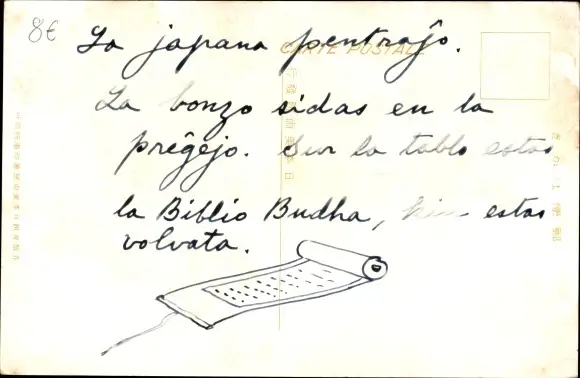 8€
La japana pentraĵo.
CARTE POSTALE
La bonzo sidas en la
preĝejo. Sur la tablo estas
la Biblio Budha, kiu estas
volvata.
きがは便郵